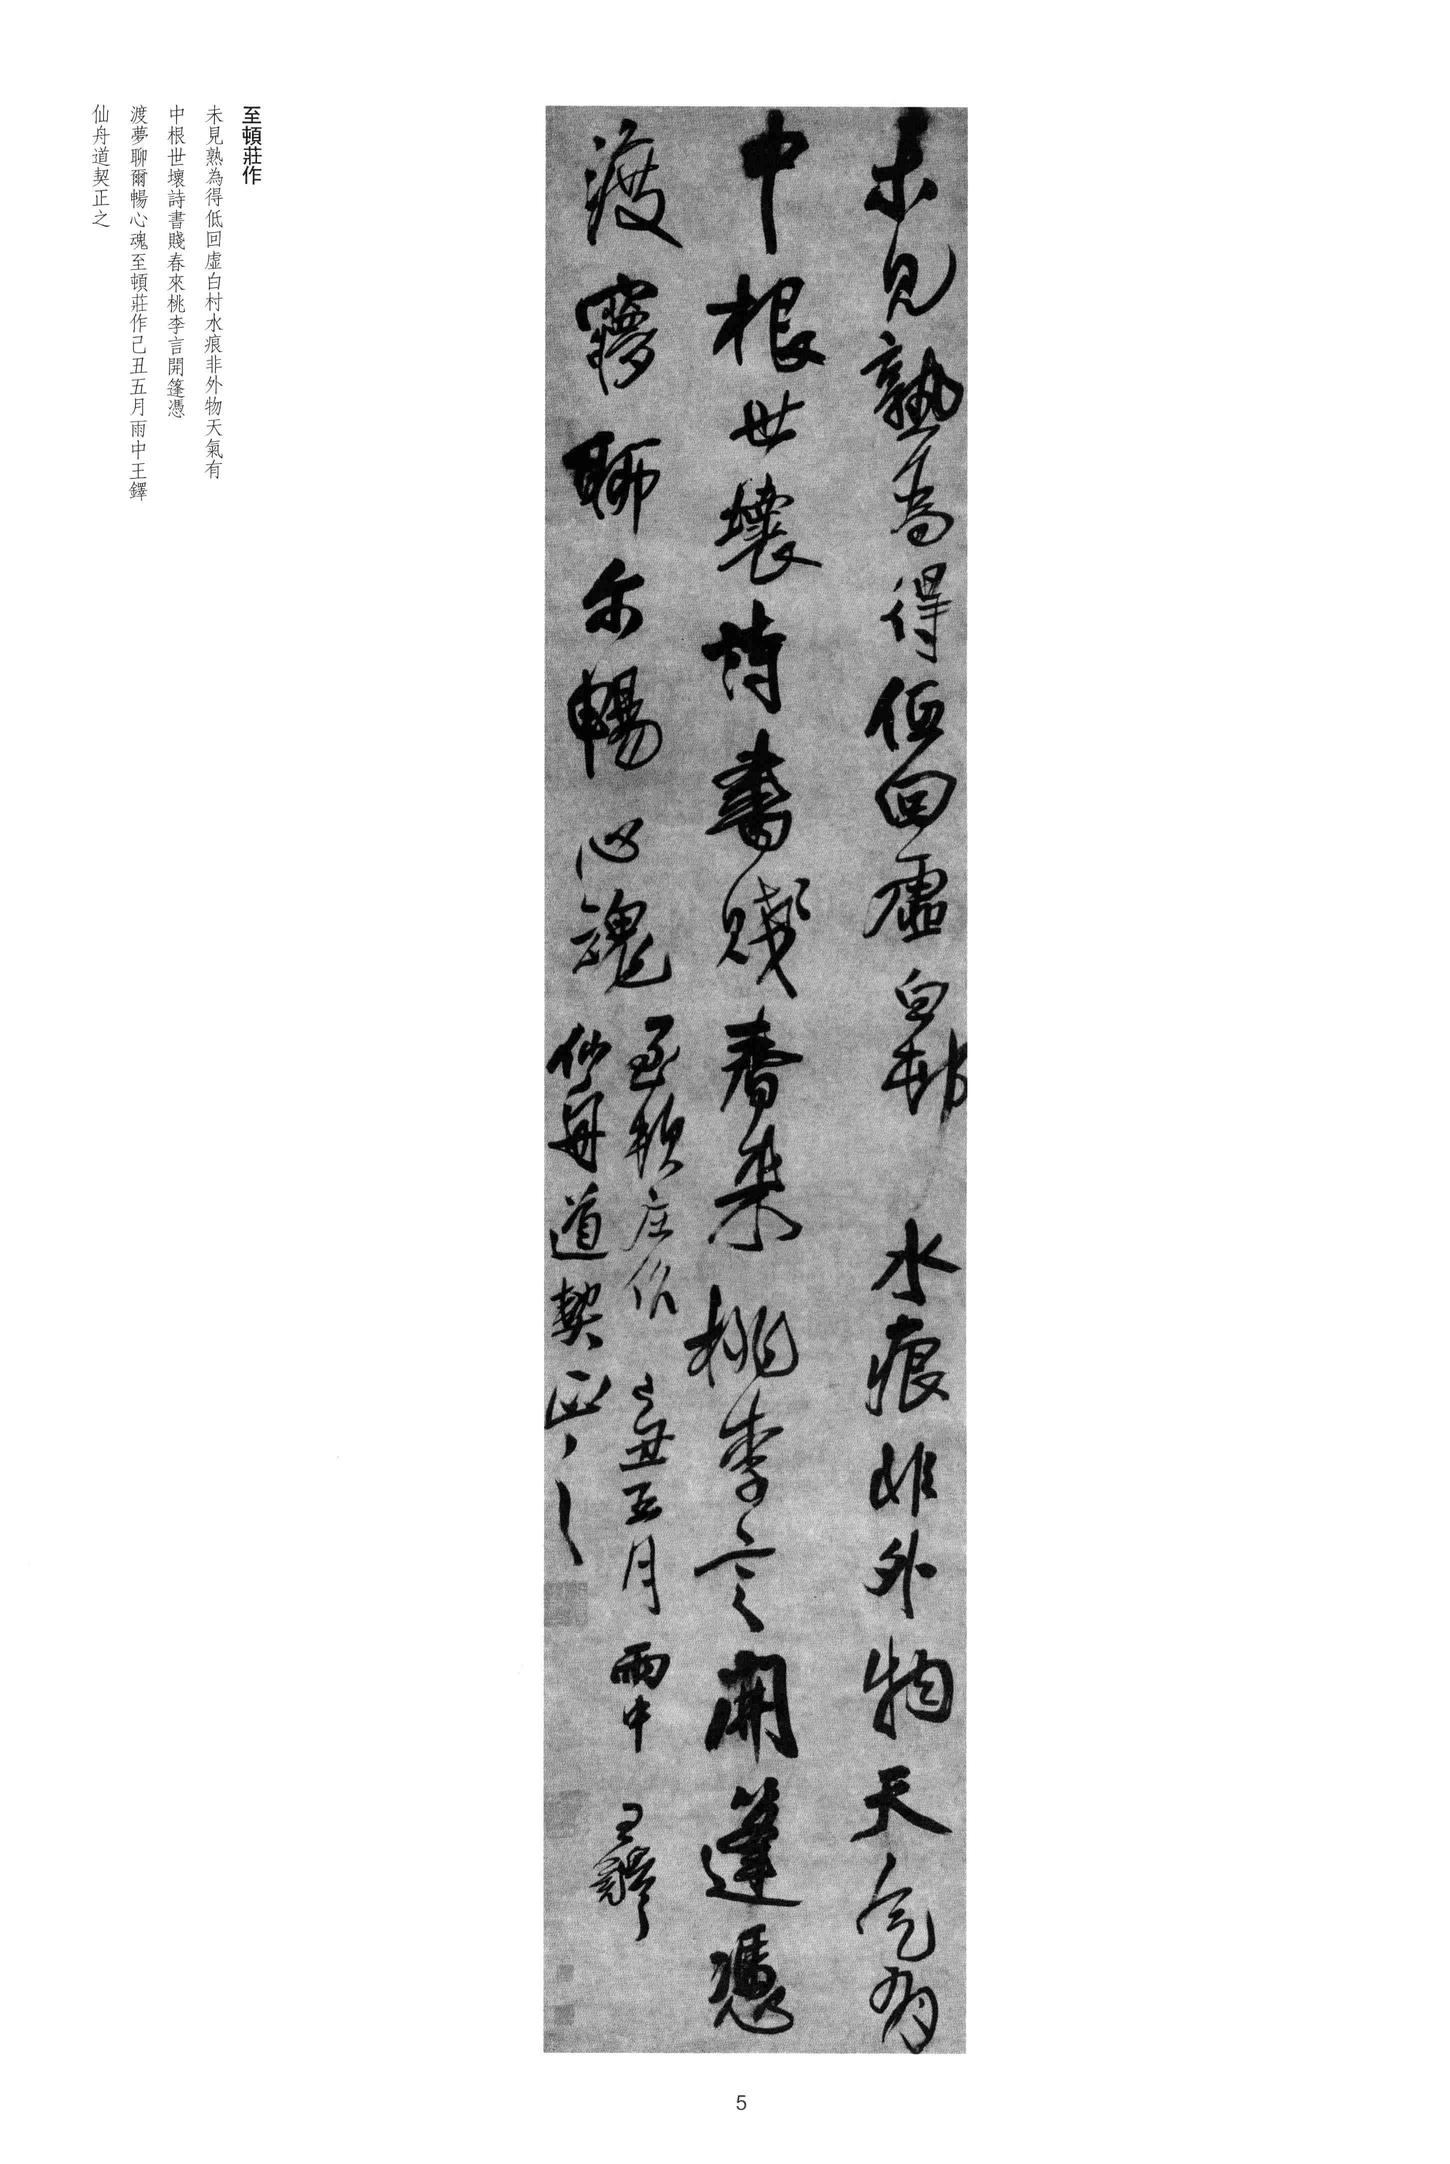 未見熟為得低回虛白村水痕非外物天氣有
中根世壞詩書賤春來桃李言開篷憑
渡夢聊爾暢心魂至頓莊作己丑五月雨中王鐸
仙舟道契正之
至頓莊作
未見熟為得低回虛白村水痕非外物天氣有
中根世壞詩書賤春來桃李言開篷憑
渡夢聊爾暢心魂至頓莊作己丑五月雨中王鐸
仙舟道契正之
5